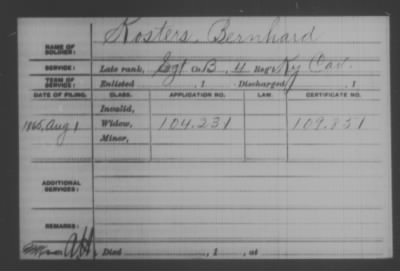 Kosters, Bernhard
NAME OF SOLDIER:
SERVICE: Late rank, Sgt Co. B, 4 Reg't Ky Cav.
TERM OF SERVICE: Enlisted , 1 Discharged , 1
DATE OF FILING. CLASS. APPLICATION NO. LAW. CERTIFICATE NO.
Invalid,
1865, Aug 1 Widow, 104.231 109.851
Minor,
ADDITIONAL SERVICES:
REMARKS:
Died , 1 , at